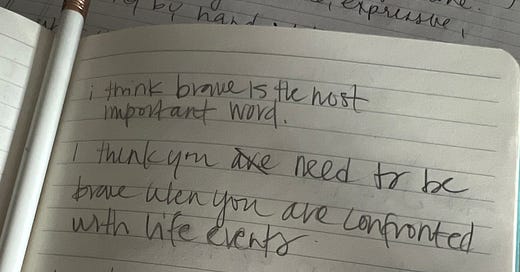 by hand
, expressive,
i think brave is the most
important word.
I think you are need to be
brave when you are confronted
with life events.